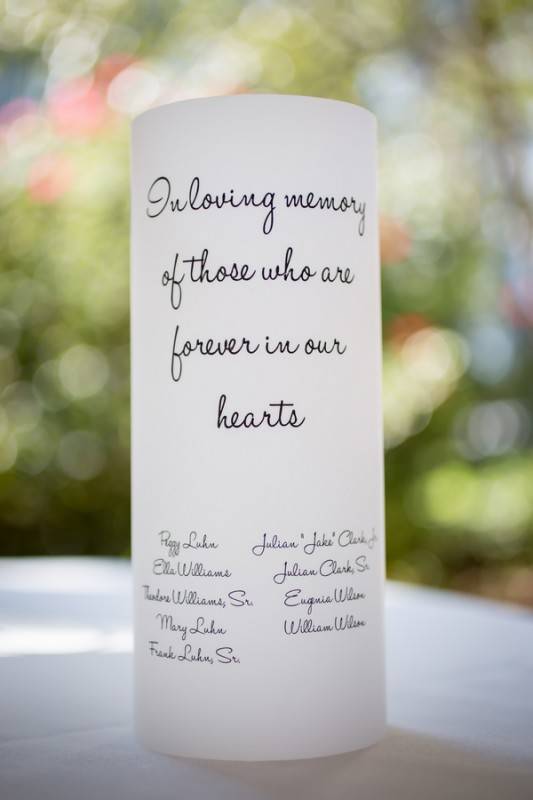 In loving memory
of those who are
forever in our
hearts
Peggy Luhn
Ella Williams
Theodore Williams, Sr.
Mary Luhn
Frank Luhn, Sr.
Julian "Jake" Clark, Jr.
Julian Clark, Sr.
Eugnia Wilson
William Wilson